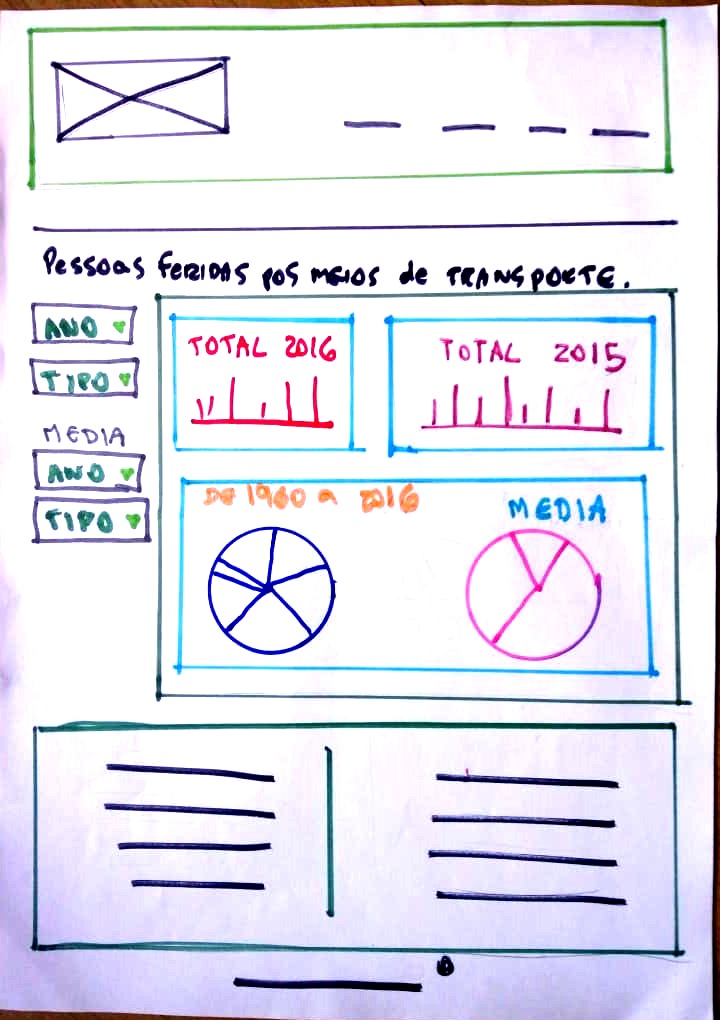 Pessoas feridas pos meios de transporte.
ANO
TIPO
MEDIA
ANO
TIPO
TOTAL 2016
TOTAL 2015
DE 1960 a 2016
MEDIA